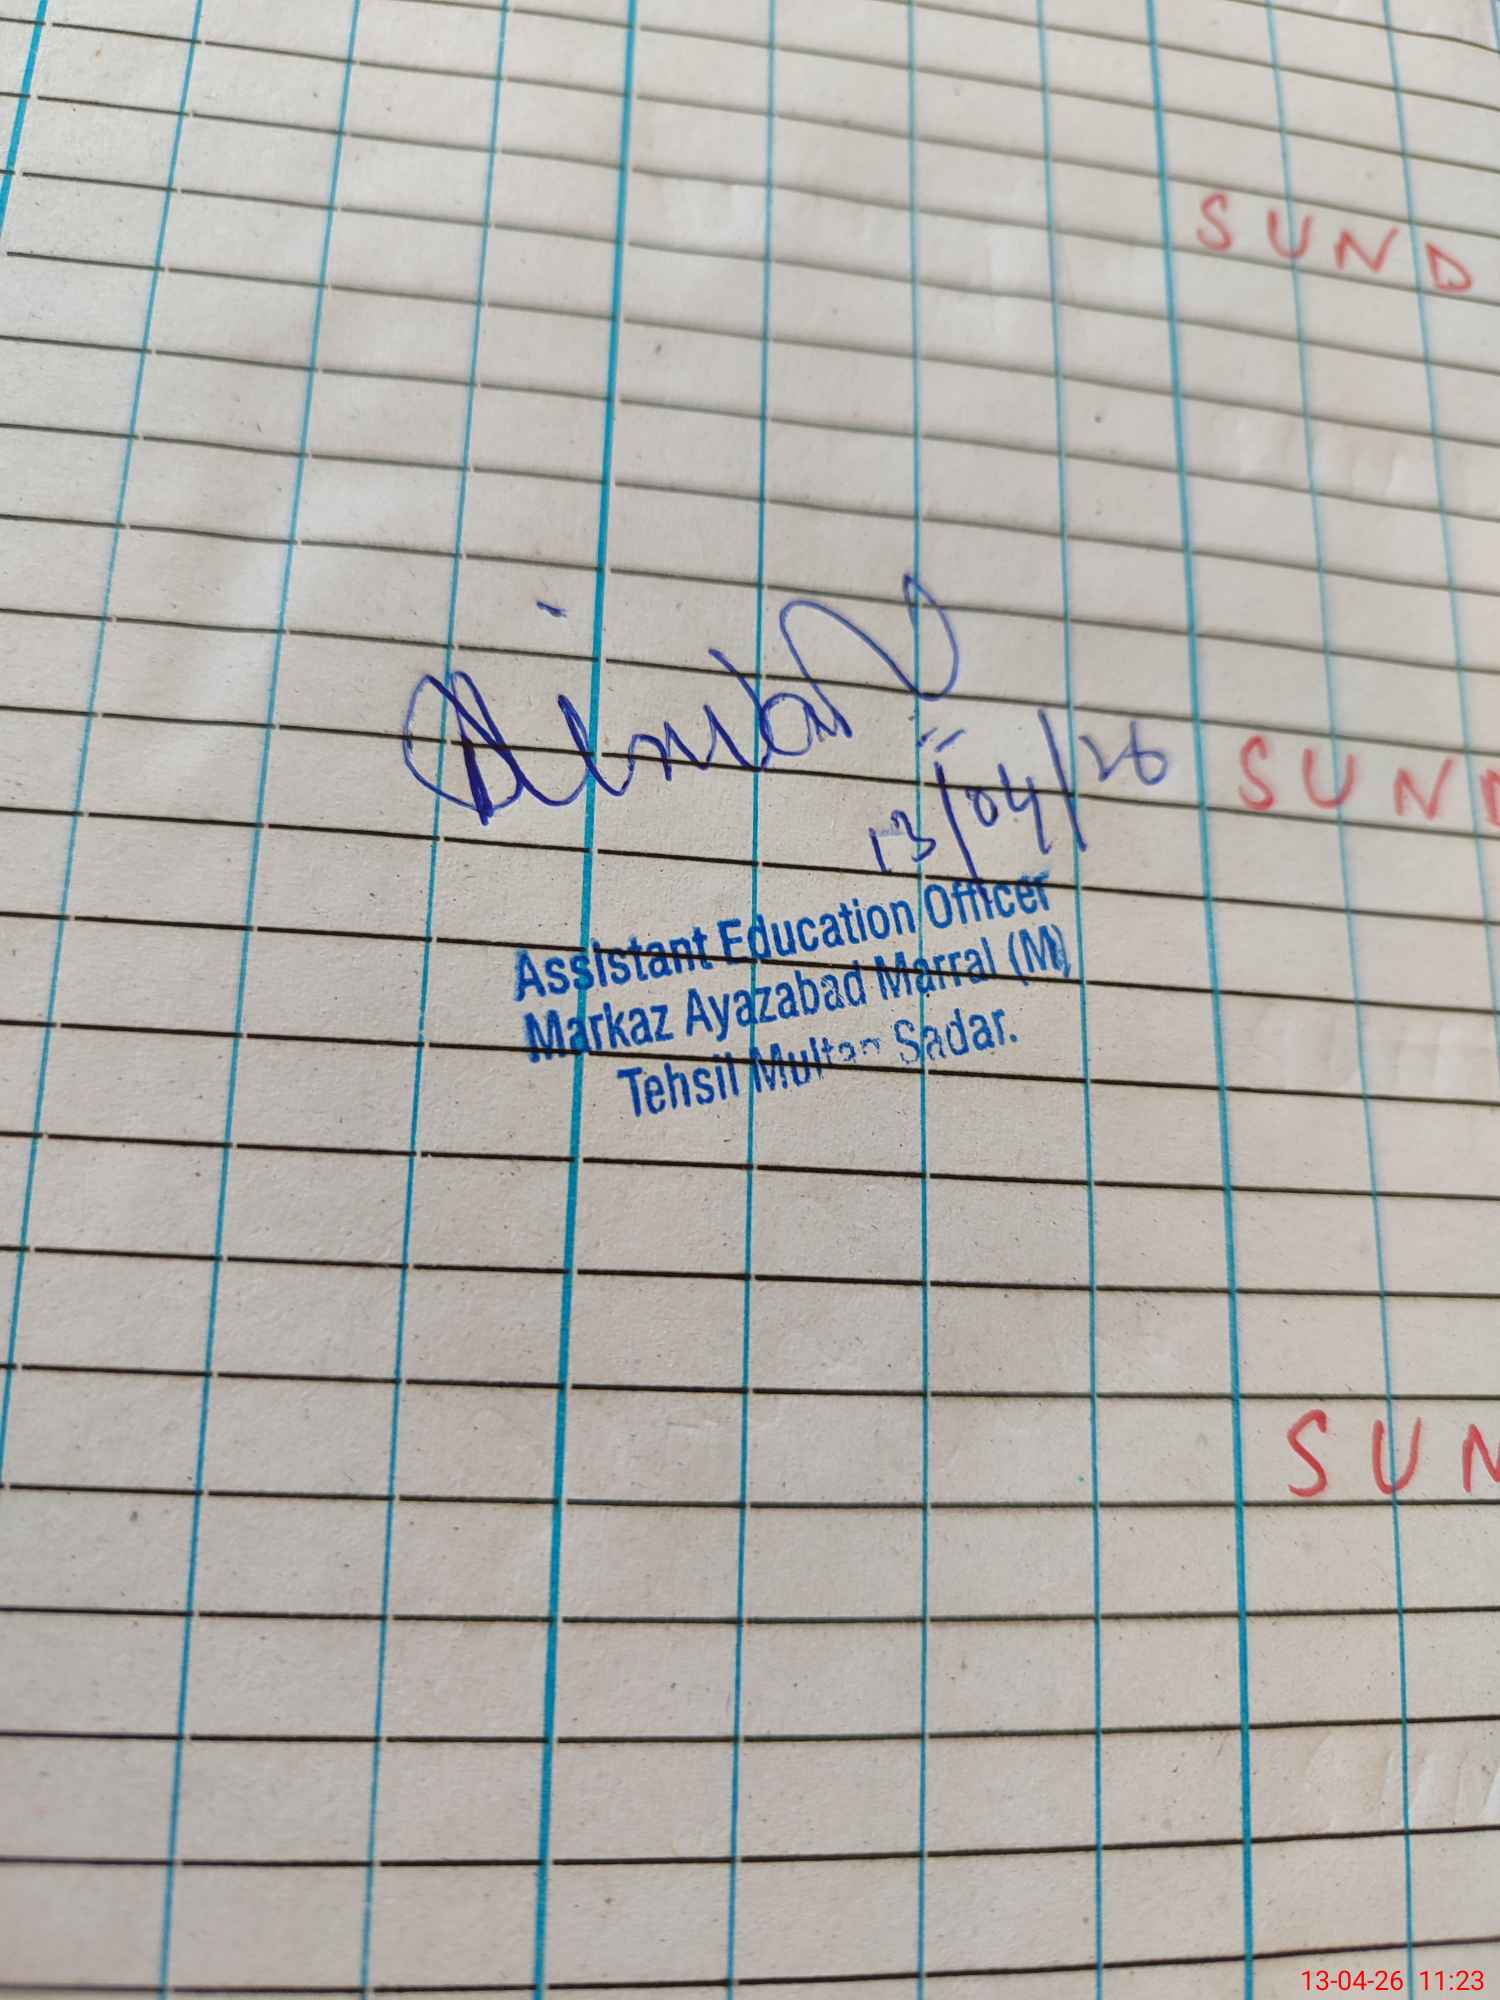 SUND
13/04/26
SUND
Assistant Education Officer
Markaz Ayazabad Marral (M)
Tehsil Multan Sadar.
SUN
13-04-26 11:23